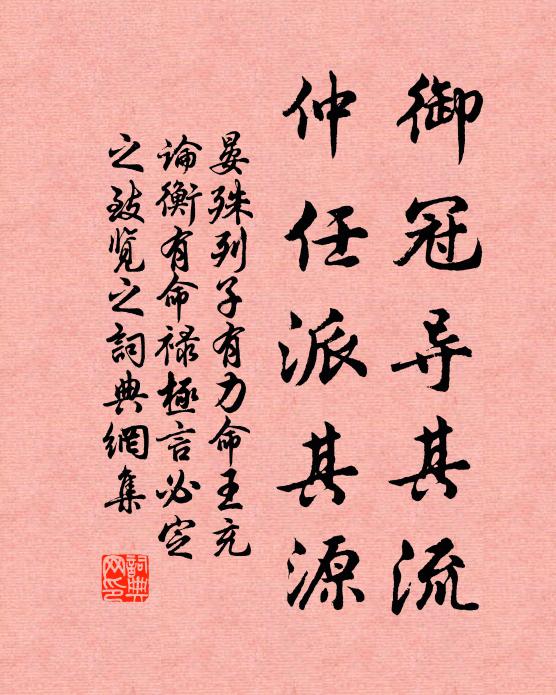 御冠导其流
仲任派其源
晏殊列子有力命王充
论衡有命禄極言必定
之致览之詞典網集
詞典网印